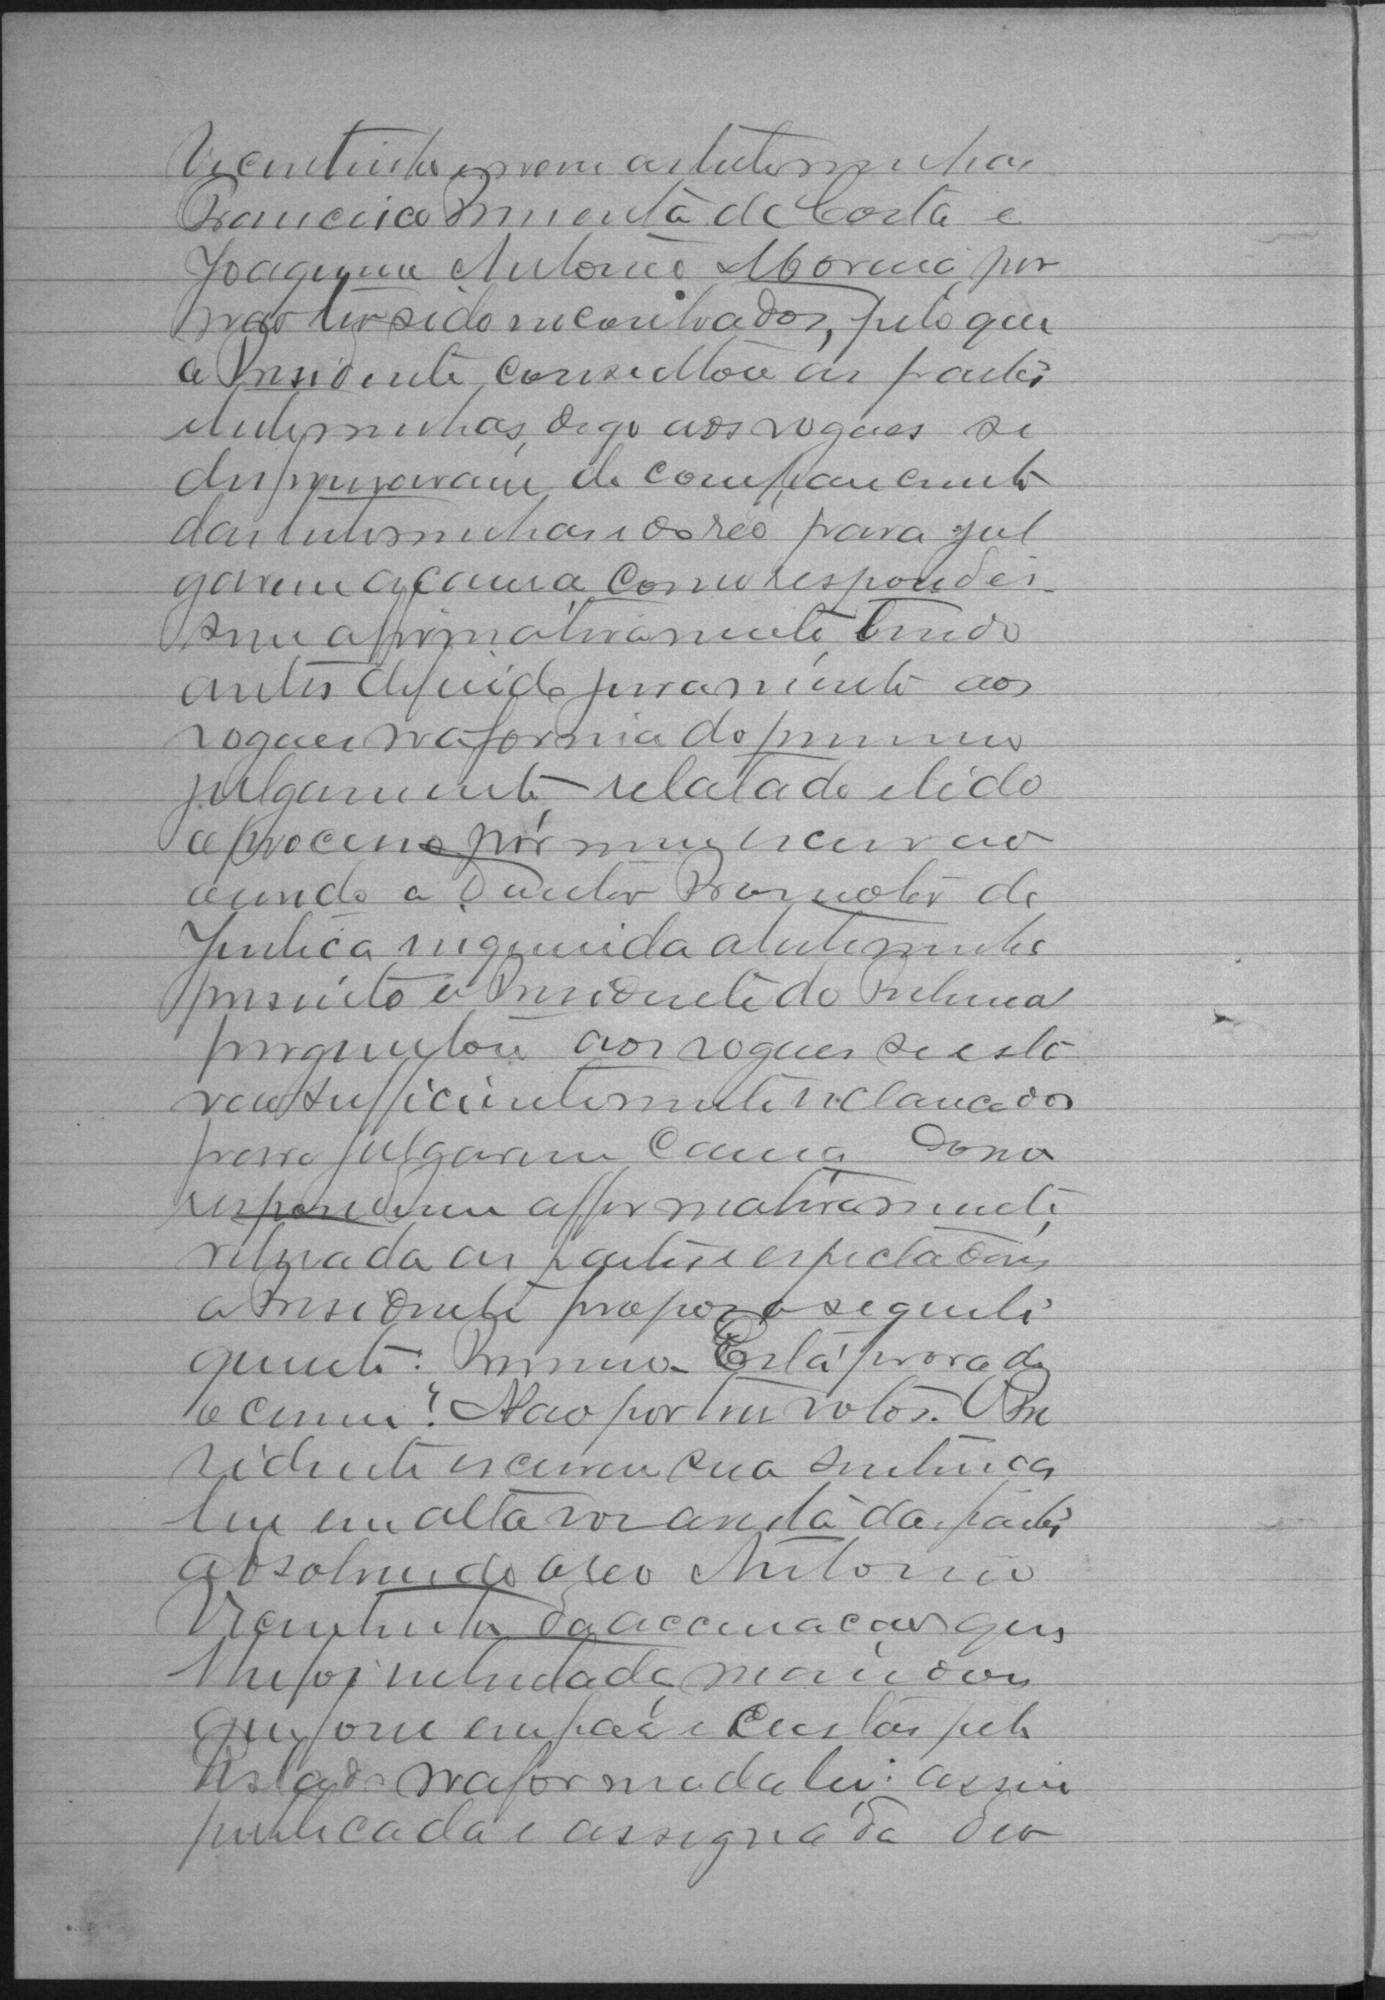 Vicentinho e nem as testemunhas
Francisco Pimenta da Costa e
Joaquim Antonio Moreira por
nao ter sido encontrados, pelo que
o Presidente consultou as partes
testemunhas, digo aos vogaes se
dispensavam do comparecimento
das testemunhas e do réo para jul
garem a causa, como responde
sem affirmativamente, tendo
antes deferido juramento aos
vogaes na forma do primeiro
julgamento relatado e lido
o processo por mim escrivao
ouvido o Doutor Promotor de
Justiça inquirida a testemunha
presente o Presidente do Tribunal
perguntou aos vogaes se esta
vam sufficientemente esclarecidos
para julgarem causa
responderam affirmativamente,
retirada as partes e espectadores
o Presidente propoz o seguinte
quesito: Primeiro. Está provado
o crime? Nao por tres votos. O Pre
sidente escreveu sua sentença
leu em alta voz as partes
absolvendo o reo Antonio
Vicentinho da accusaçao que
lhe foi intentada, mandou
que fosse em paz e custas pelo
Estado na forma da lei: assim
publicada e assignada deu